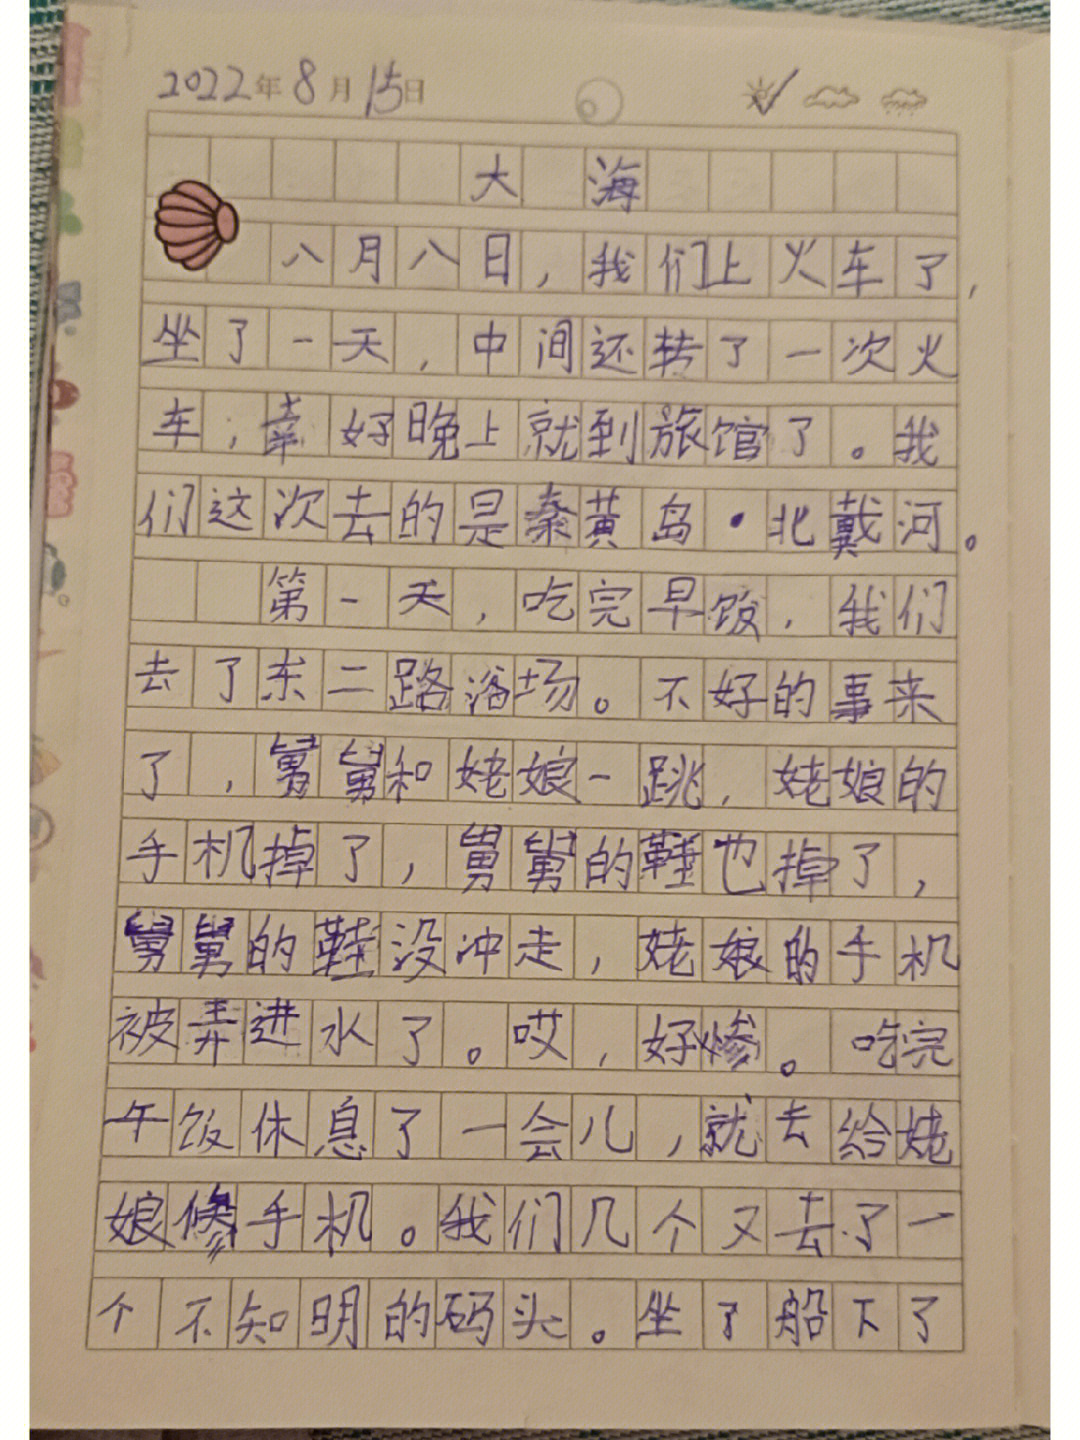 2022年8月15日
大海
八月八日，我们上火车了，
坐了一天，中间还转了一次火
车，幸好晚上就到旅馆了。我
们这次去的是秦黄岛·北戴河。
第一天，吃完早饭，我们
去了东二路浴场。不好的事来
了，舅舅和姥娘一跳，姥娘的
手机掉了，舅舅的鞋也掉了，
舅舅的鞋没冲走，姥娘的手机
被弄进水了。哎，好惨。吃完
午饭休息了一会儿，就去给姥
娘修手机。我们几个又去了一
个不知明的码头。坐了船下了